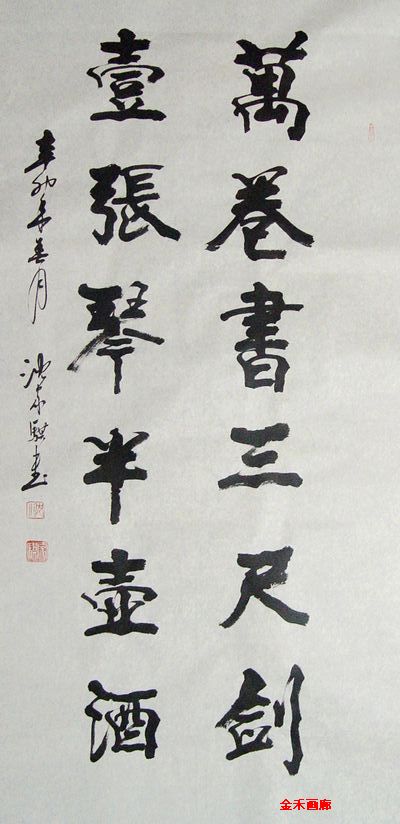 萬卷書三尺劍
壹張琴半壺酒
辛卯年春月
金禾画廊